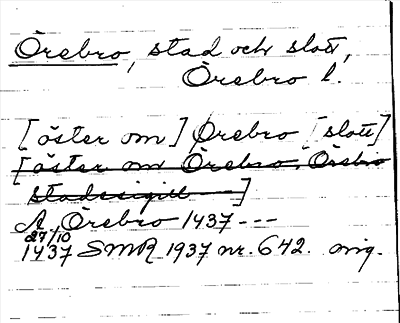 Örebro, stad och slott,
Örebro l.
[öster om] Örebro [slott]
[öster om Örebro, Örebro
stadssigill ---]
A. Örebro 1437 ---
27/10
1437 SMR 1937 nr. 642. orig.